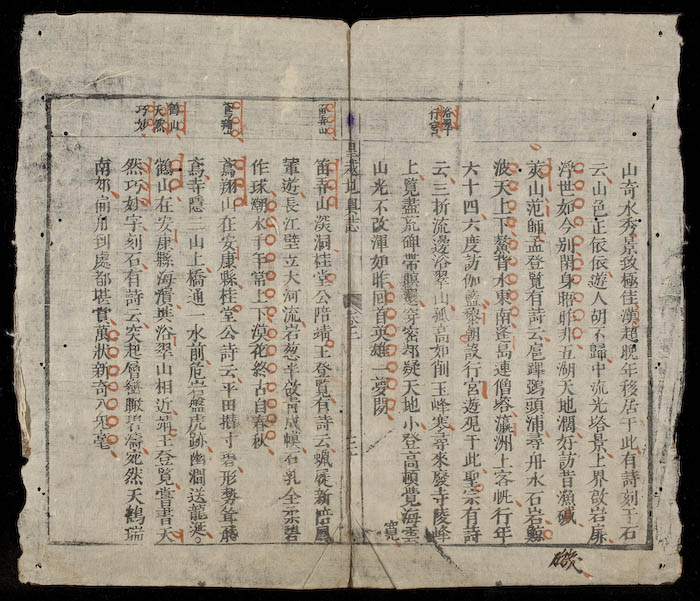 浴翠
行宮
山奇水秀景致極佳漢超晚年移居于此有詩刻于石
云山色正依依遊人胡不歸中流光塔景上界啟岩扉
浮世如今別閑身晤昨非五湖天地濶好訪昔漁磯
磯
莢山范師孟登覽有詩云扈蹕弭頭浦尋舟水石岩鯨
波天上下鰲背水東南蓬島連僧塔瀛洲上客帆行年
六十四六度訪伽藍黎朝設行宮遊覌于此聖宗有詩
云三折流邊浴翠山孤高如削玉峰寒尋來廢寺陵峰
上覽盡荒碑帶蘚窄窓疑天地小登高頓覺海雲
寬
山光不改渾如昨回首英雄一夢閑
皇越地輿誌 卷之二
笛弄山
笛弄山淡洞桂堂公陪靖王登覽有詩云蠟屐新陪鳳
輦遊長江壁立大河流岩葱半啟青成幀石乳全柔碧
作球潮水手年常上下漠花終古自春秋
鳶翔山
鳶翔山在安康縣桂堂公詩云平田揩寸碧形勢聳飛
鳶寺隱三山上橋通一水前危岩盤虎跡幽澗送龍涎
鶴山
天然
巧妙
鶴山在安康縣海濱與浴翠山相近靖王登覽嘗書天
然巧妙字刻石有詩云突起層巒瞰碧濤宛然天鶴瑞
南郊扁舟到處都堪賞萬狀新奇入彩毫